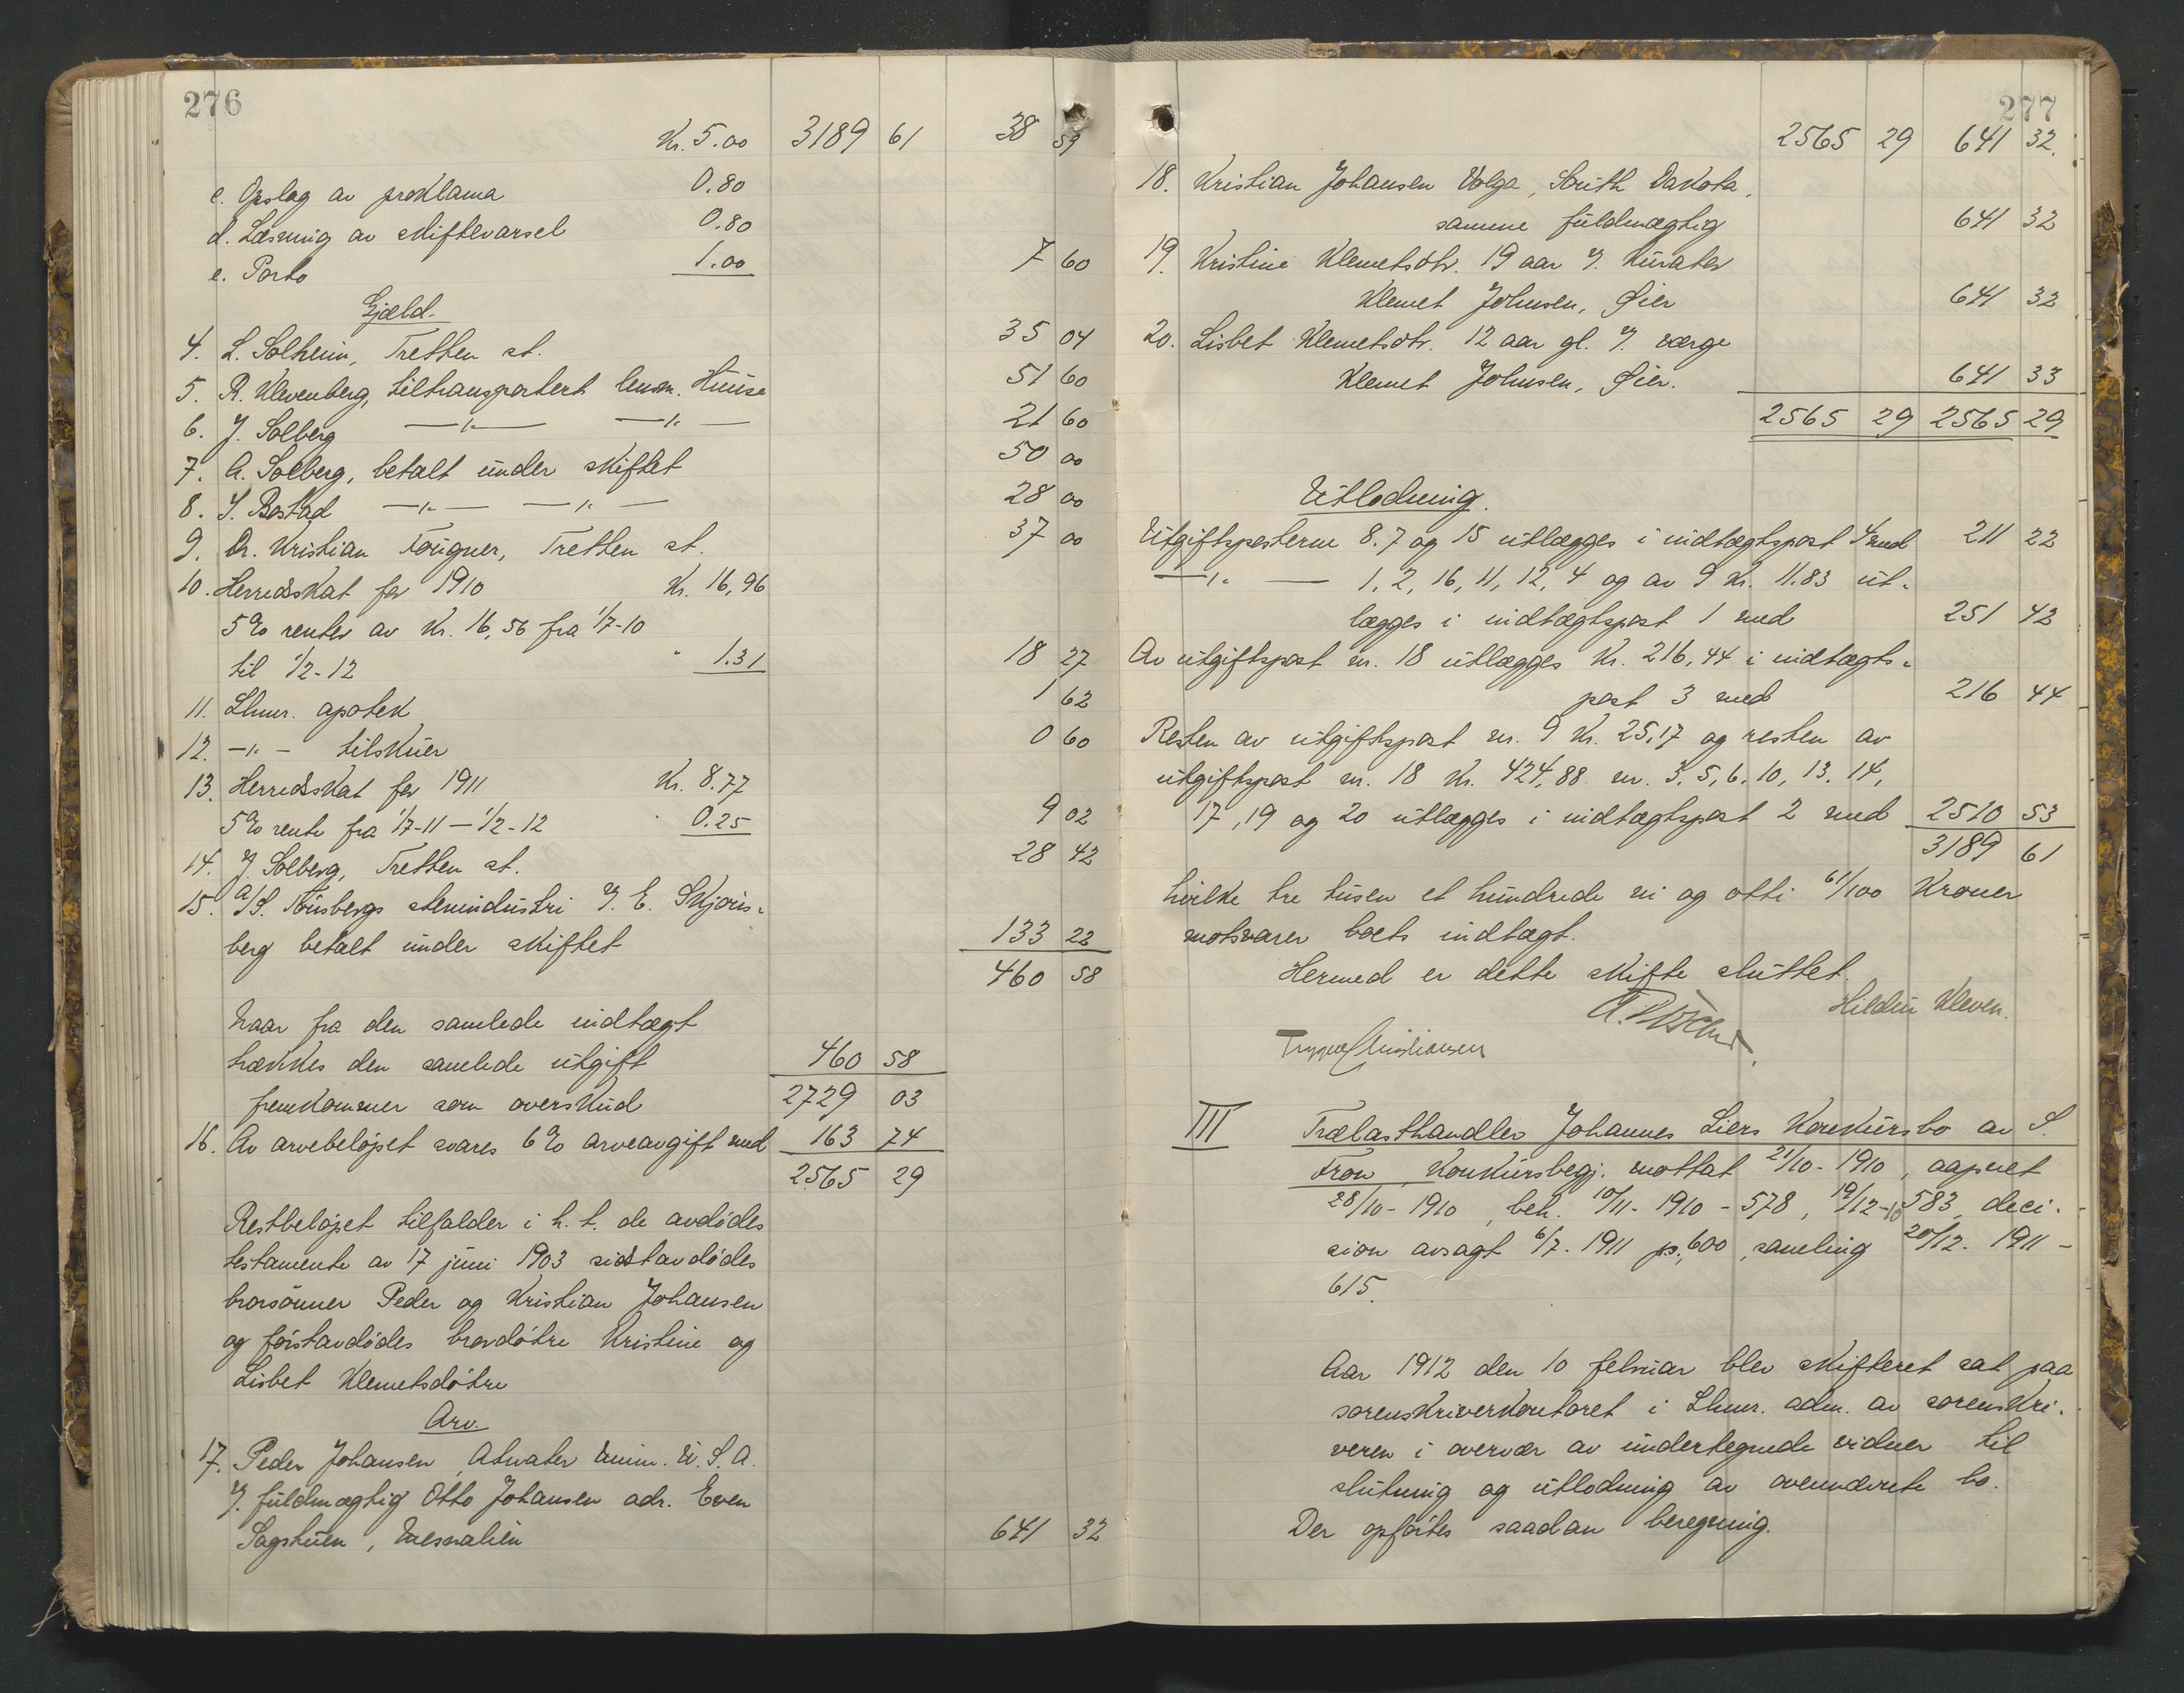 276
Kr. 5.00 3189 61 38 59
c. Opslag av proklama 0.80
d. Læsning av skiftevarsel 0.80
e. Porto 1.00 7 60
Gjæld.
4. L. Solheim, Tretten st. 35 04
5. R. Klevenberg, tiltransportert lensm. Huuse 51 60
6. J. Solberg —"— —"— 21 60
7. A. Solberg, betalt under skiftet 50 00
8. J. Bostad —"— —"— 28 00
9. Dr. Kristian Fougner, Tretten st. 37 00
10. Herredskat for 1910 Kr. 16,96
5% renter av Kr. 16,56 fra 1/7-10
til 1/2-12 " 1.31 18 27
11. Lhmr. apotek 1 62
12. —"— tilskuer 0 60
13. Herredskat for 1911 Kr. 8.77
5% rente fra 1/7-11 — 1/2-12 " 0.25 9 02
14. J. Solberg, Tretten st. 28 42
15. A/S. Fousbergs stenindustri v. E. Skjøns-
berg betalt under skiftet 133 22
460 58
Naar fra den samlede indtægt
trækkes den samlede utgift 460 58
fremkommer som overskud 2729 03
16. Av arvebeløpet svares 6% arveavgift med 163 74
2565 29
Restbeløpet tilfalder i h. t. de avdødes
testamente av 17 juni 1903 sidstavdødes
brorsønner Peder og Kristian Johansen
og førstavdødes brordøtre Kristine og
Lisbet Klemetsdøtre
Arv.
17. Peder Johansen, Atwater Minn. U. S. A.
v. fuldmægtig Otto Johansen adr. Even
Sagstuen, Mesnalien 641 32
277
2565 29 641 32.
18. Kristian Johansen Volga, South Dakota,
samme fuldmægtig 641 32
19. Kristine Klemetsdtr. 19 aar v. kurator
Klemet Johnsen, Øier 641 32
20. Lisbet Klemetsdtr. 12 aar gl. v. værge
Klemet Johnsen, Øier. 641 33
2565 29 2565 29
Utlodning.
Utgiftsposterne 8. 7 og 15 utlægges i indtægtspost 4 med 211 22
—"— 1, 2, 16, 11, 12, 4 og av 9 Kr. 11.83 ut-
lægges i indtægtspost 1 med 251 42
Av utgiftspost nr. 18 utlægges Kr. 216,44 i indtægts-
post 3 med 216 44
Resten av utgiftspost nr. 9 Kr. 25,17 og resten av
utgiftspost nr. 18 Kr. 424,88 nr. 3. 5, 6, 10, 13. 14,
17, 19 og 20 utlægges i indtægtspost 2 med 2510 53
3189 61
hvilke tre tusen et hundrede ni og otti 61/100 Kroner
motsvarer boets indtægt.
Hermed er dette skifte sluttet.
Hildur Kleven.
Trygve Christiansen
III Trælasthandler Johannes Liers Konkursbo av S.
Fron, Konkursbegj. mottat 21/10-1910, aapnet
28/10-1910, beh. 10/11-1910 - 578, 19/12-10 583, deci-
sion avsagt 6/7-1911 p. 600, samling 20/12. 1911 -
615.
Aar 1912 den 10 februar blev skifteret sat paa
sorenskriverkontoret i Lhmr. adm. av sorenskri-
veren i overvær av undertegnede vidner til
slutning og utlodning av ovennævnte bo.
Der opførtes saadan beregning.